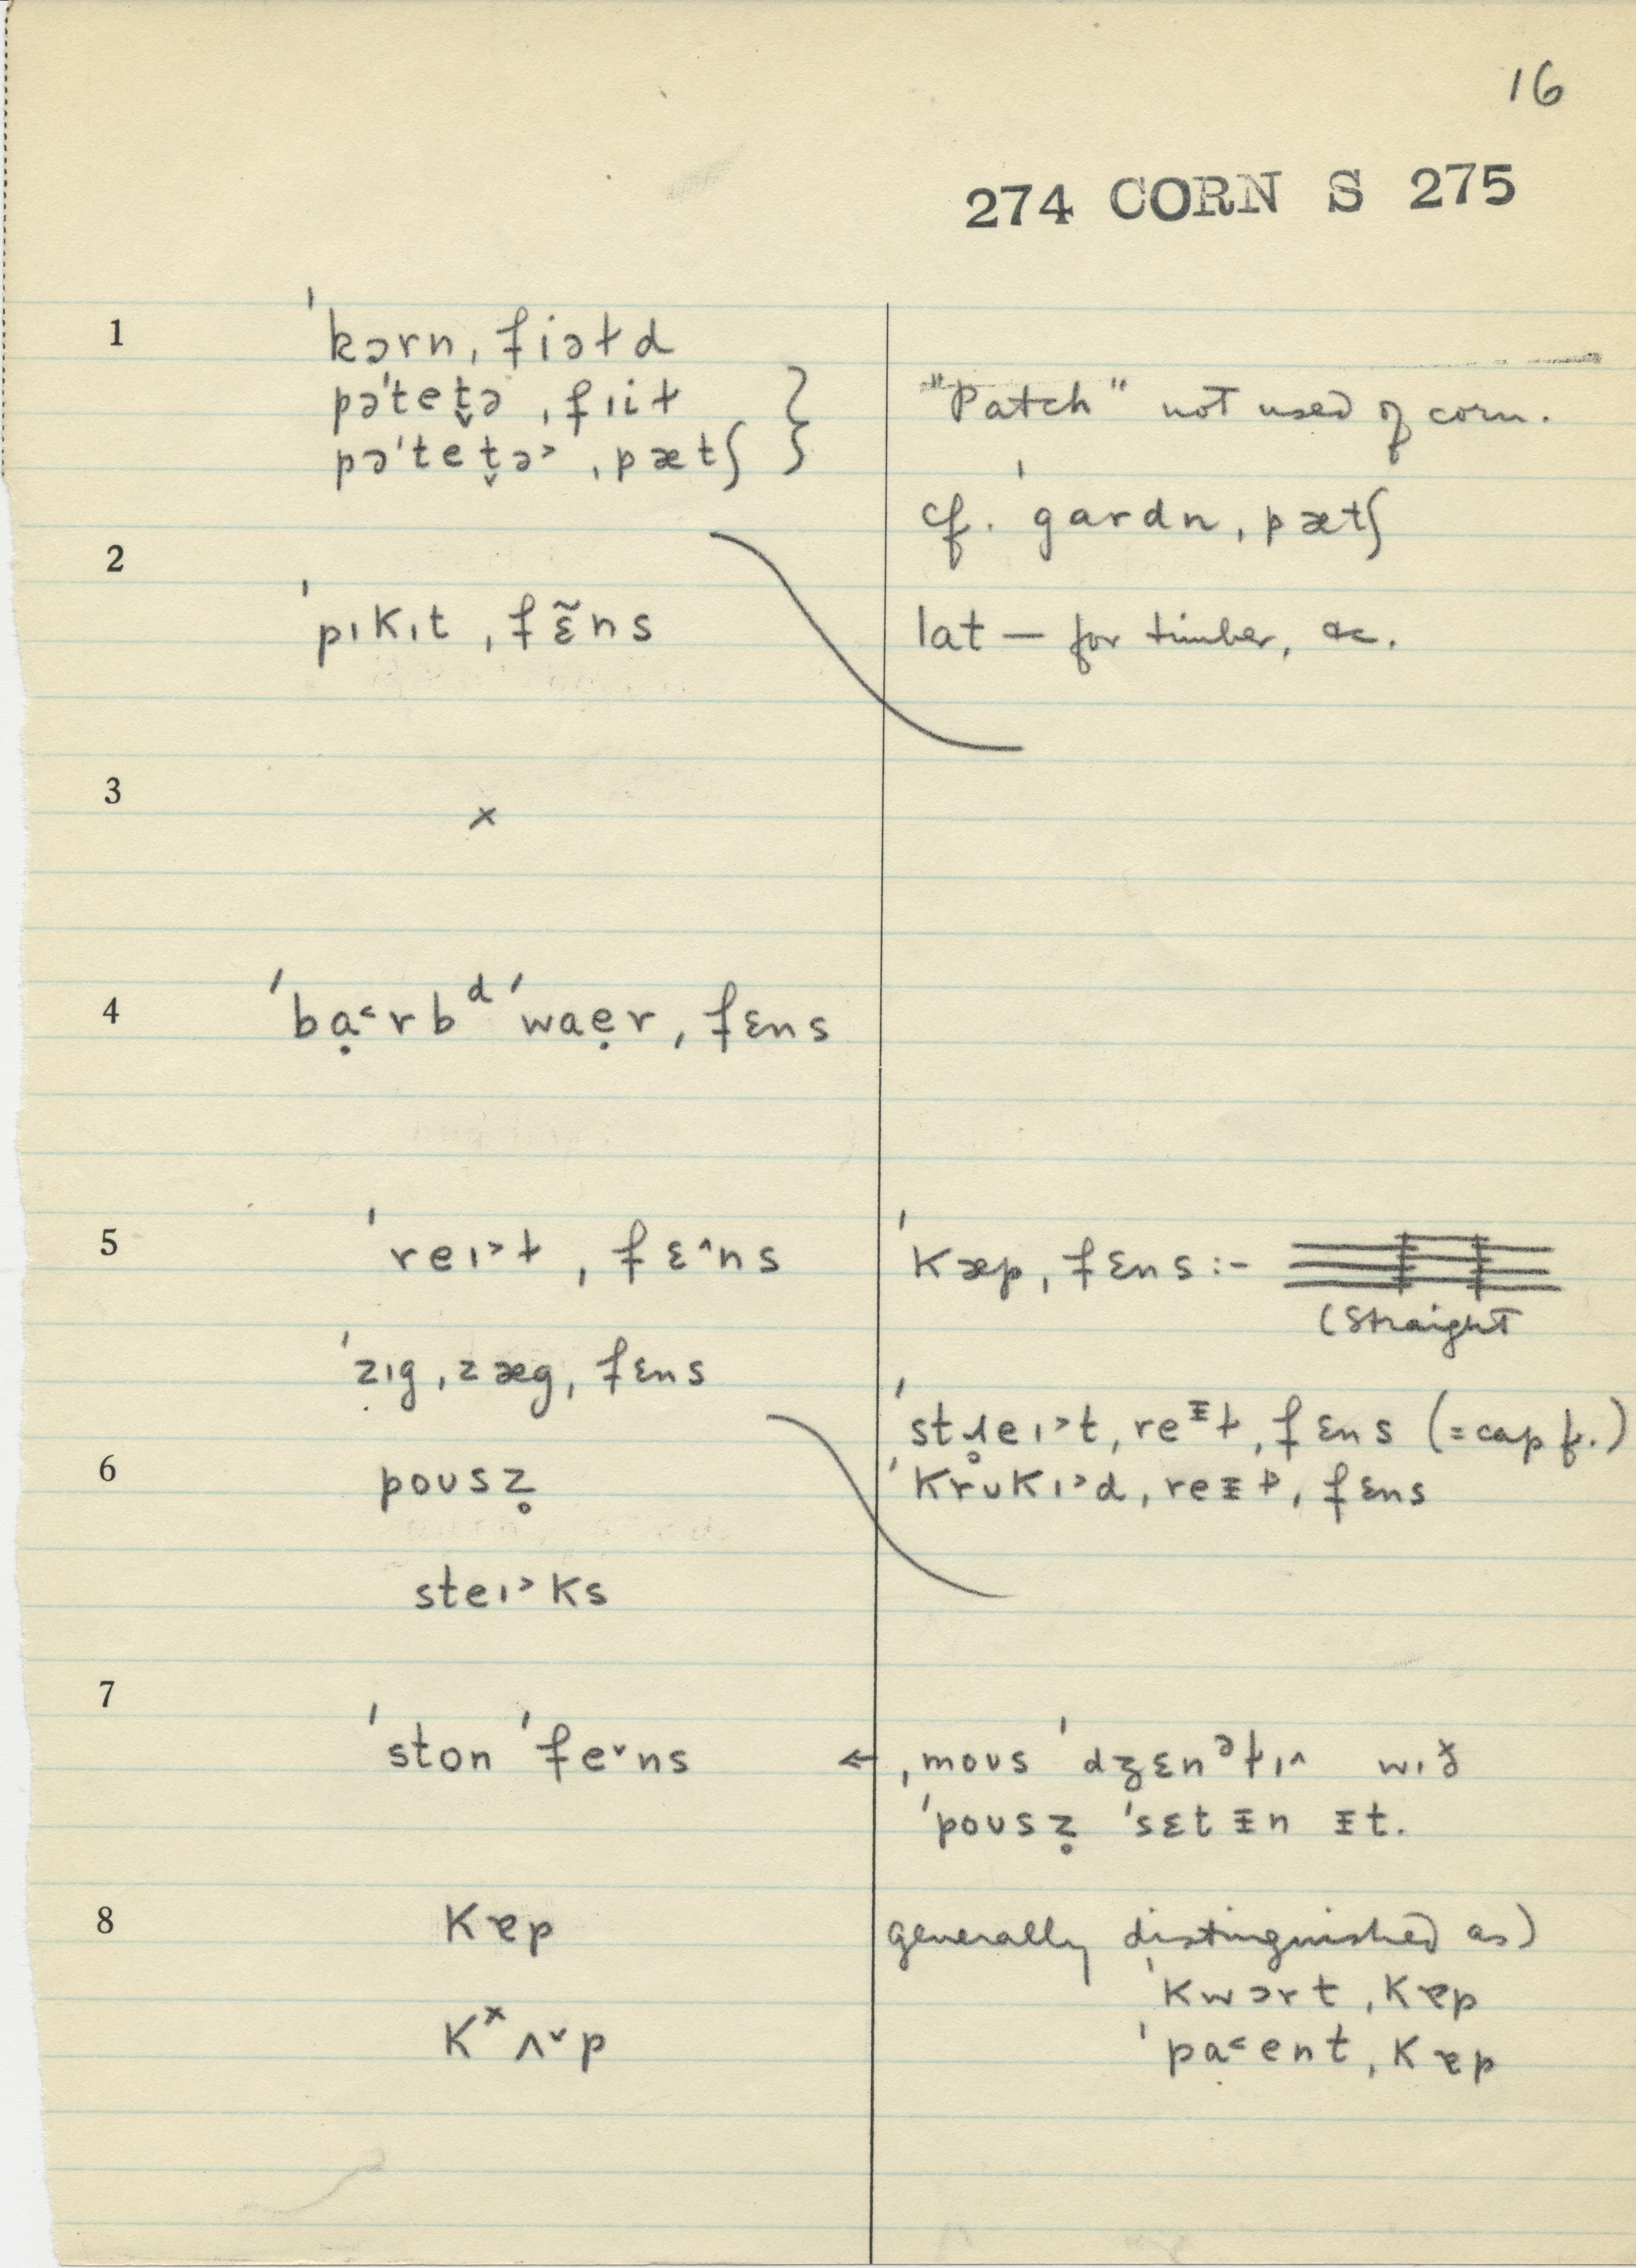 16
274 CORN S 275
1
ˈkɔrn ˌfiəɫd
pəˈtet̬ə ˌfɪiɫ }
pəˈtet̬ə˃ ˌpætʃ }
"Patch" not used of corn.
cf. ˈgardn ˌpætʃ
2
ˈpɪkɪt ˌfɛ̃ns
lat — for timber, &c.
3
×
4
ˈbạ˂rbᵈ ˈwaẹr ˌfɛns
5
ˈreɪ˃ɫ ˌfɛ˄ns
ˈkæp ˌfɛns :-
(Straight
ˈzɪg ˌzæg ˌfɛns
ˈstɹ̥eɪ˃t ˌreᵻɫ ˌfɛns (= cap f.)
ˈkrʊkɪ˃d ˌreᵻɫ ˌfɛns
6
poʊsz̥
steɪ˃ks
7
ˈston ˈfe˅ns
← ˌmoʊs ˈdʒɛnᵊɫɪ˄ wɪð
ˈpoʊsz̥ ˈsɛt ᵻn ᵻt.
8
kɐp
kˣʌ˅p
generally distinguished as)
ˈkwɔrt ˌkɐp
ˈpa˂ent ˌkɐp